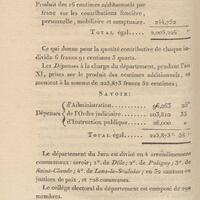 Produit des 15 centimes additionnels par
franc sur les contributions foncière,
personnelle, mobiliaire et somptuaire.
TOTAL égal.....
Ce qui donne pour la quotité contributive de chaque individu
6 francs 91 centimes 3 quarts.
Les Dépenses à la charge du département, pendant l'an
XI, prises sur le produit des centimes additionnels, se
montent à la somme de 223 873 francs 58 centimes ;
SAVOIR:
d'Administration
Dépenses de l'Ordre judiciaire 103,810 33
d'Instruction publique
TOTAL égal.....
Le département du Jura est divisé en 4 arrondissemens
communaux : savoir ; 1°. de Dôle; 2°. de Poligny ; 3°. de
Saint-Claude; 4°. de Lons-le-Saulnier; en 32 cantons ou
justices de paix, et 728 communes.
Le collége électoral du département est composé de 290
membres.